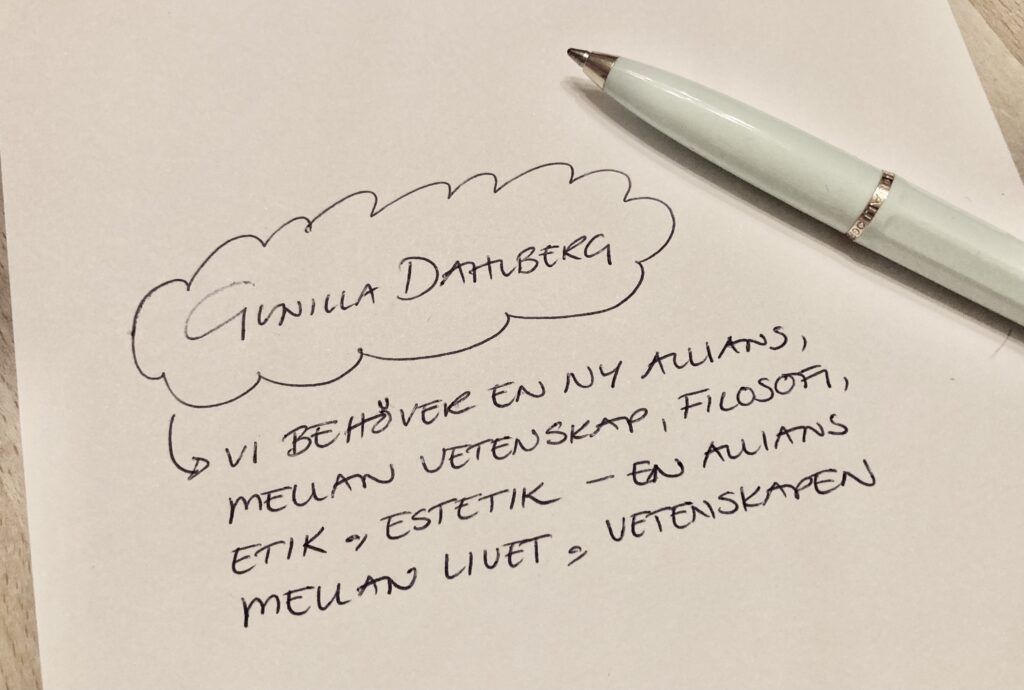 GUNILLA DAHLBERG
VI BEHÖVER EN NY ALLIANS,
MELLAN VETENSKAP, FILOSOFI,
ETIK & ESTETIK – EN ALLIANS
MELLAN LIVET & VETENSKAPEN